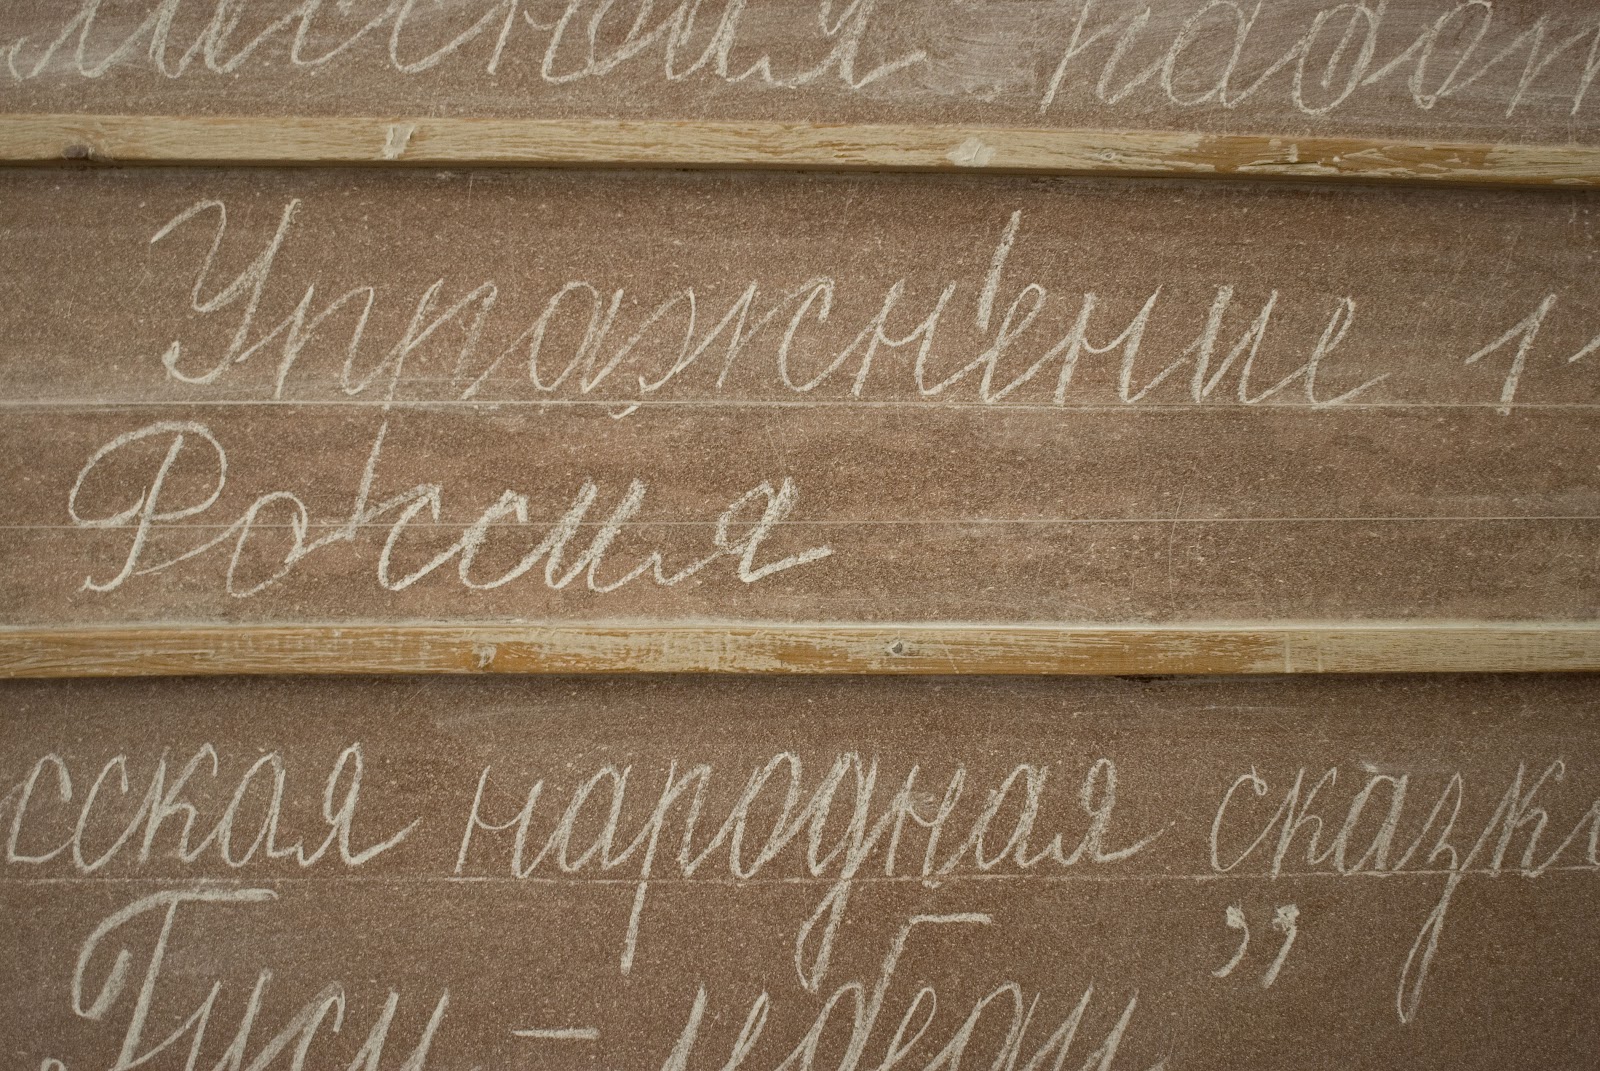 работ
Упражне́ние 1
Ро́ссия
сская народная сказк
Гуси - лебеди"